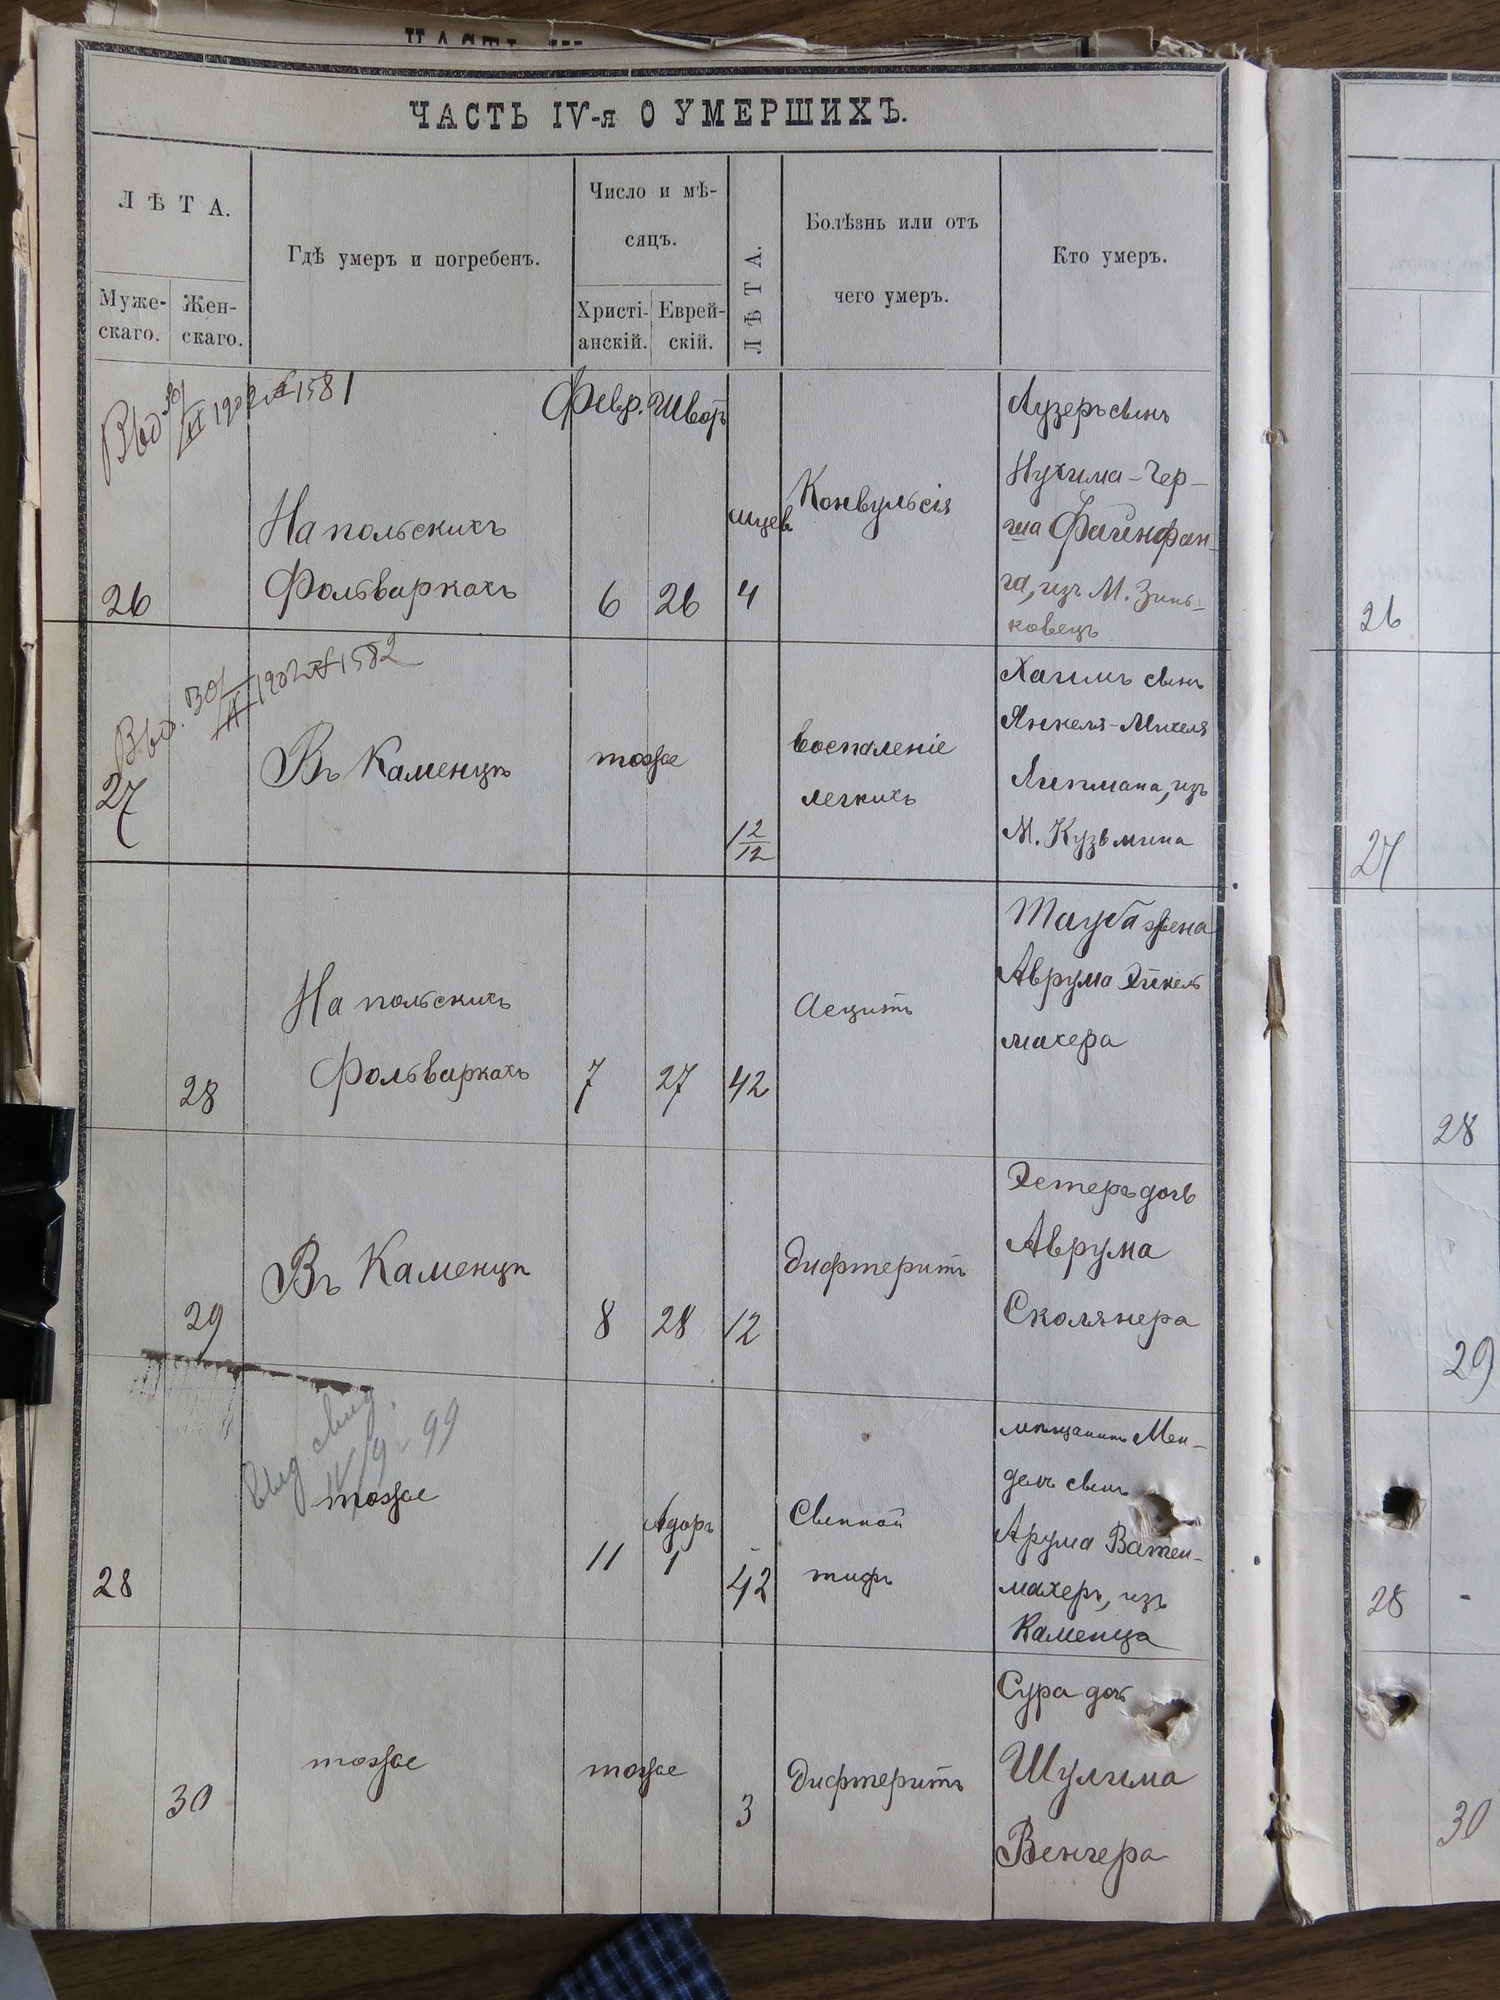 ЧАСТЬ IV-я О УМЕРШИХЪ.
ЛѢТА.
Муже-
скаго.
Жен-
скаго.
Гдѣ умеръ и погребенъ.
Число и мѣ-
сяцъ.
Христі-
анскій.
Еврей-
скій.
ЛѢТА.
Болѣзнь или отъ
чего умеръ.
Кто умеръ.
1902 № 1581
Февр. Шватъ
26
На польскихъ
Фольваркахъ
6
26
4
Конвульсія
Лузеръ сынъ
Нухима-Гер-
ша Файнфан-
га, изъ М. Зинь-
ковецъ
Выд. 30/XI 1902 № 1582
27
Въ Каменцѣ
тоже
12/12
воспаленіе
легкихъ
Хаимъ сынъ
Янкеля-Михеля
Липмана, изъ
М. Кузьмина
28
На польскихъ
Фольваркахъ
7
27
42
Асцитъ
Тауба жена
Аврума
махера
29
Въ Каменцѣ
8
28
12
дифтеритъ
Эстеръ дочь
Аврума
Сколянера
Выд свид.
9 - 99
28
тоже
11
Адаръ
1
42
Сыпной
тифъ
мѣщанинъ Мен-
дель сынъ
Арума Ватен-
махеръ, изъ
Каменца
30
тоже
тоже
3
дифтеритъ
Сура дочь
Шулима
Венгера
26
27
28
29
28
30